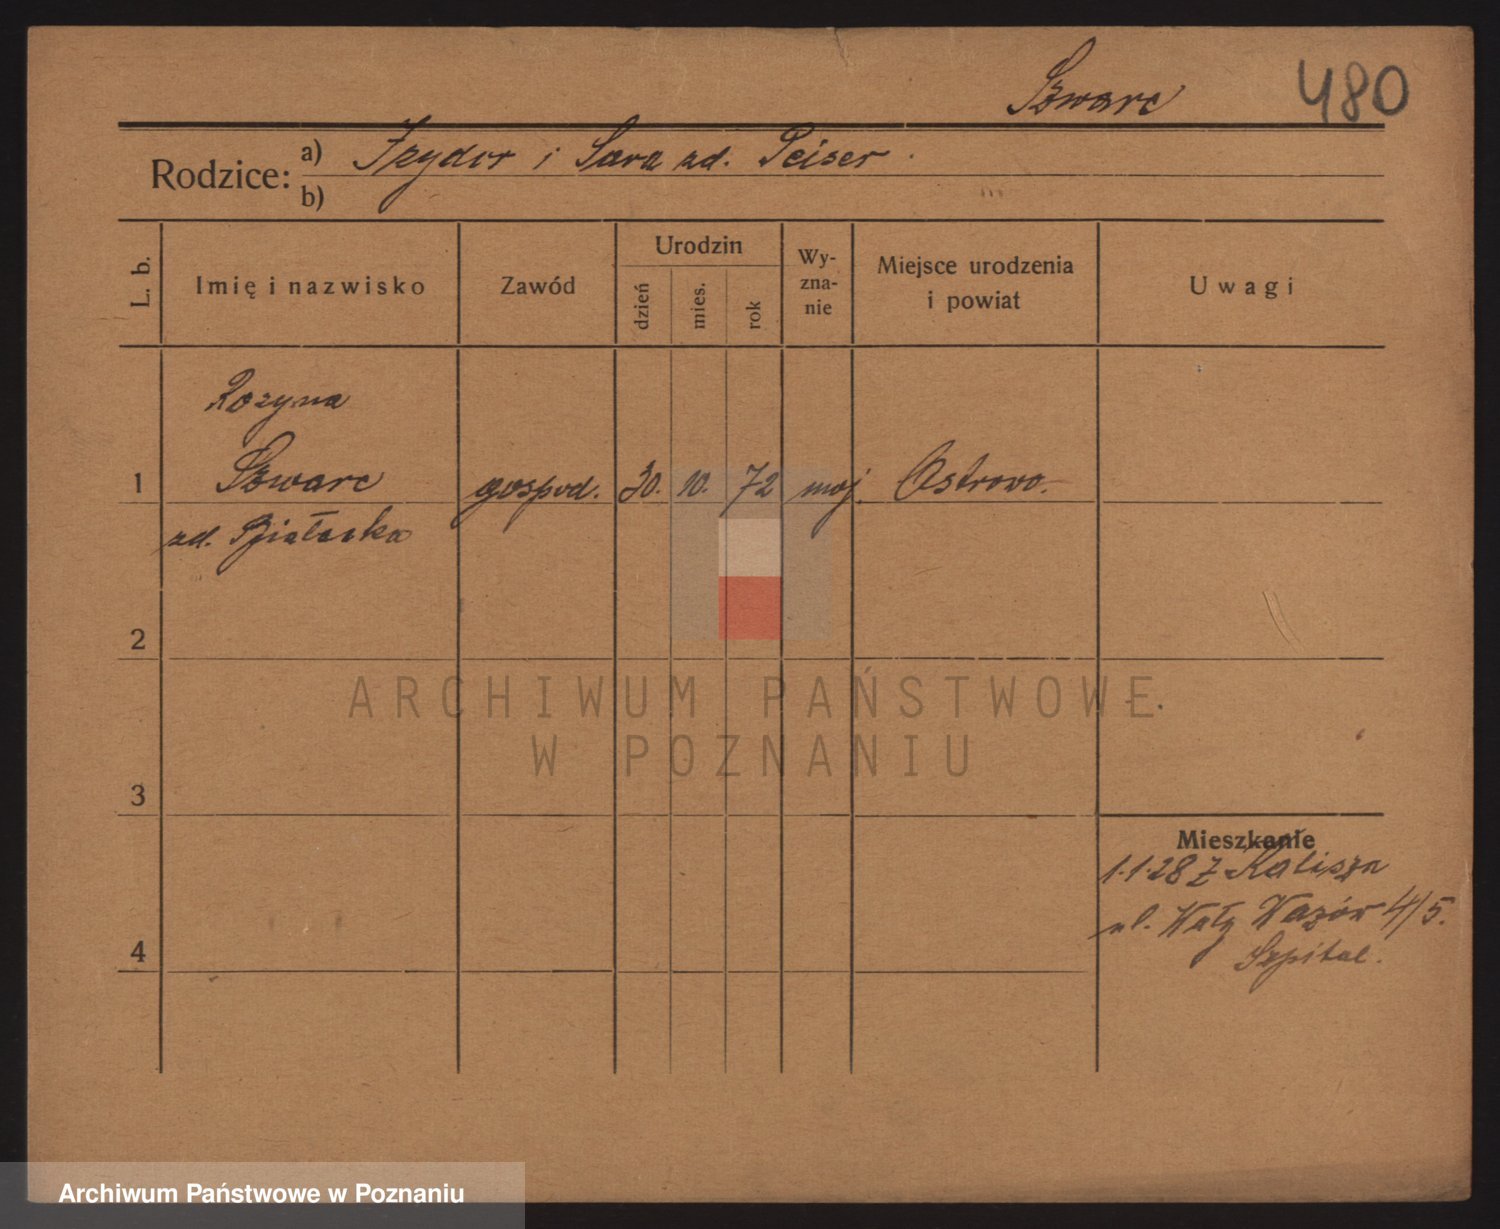 Szwarc 480
Rodzice:
a) Izydor i Sara zd. Peiser
b)
L. b.
Imię i nazwisko
Zawód
Urodzin
dzień
mies.
rok
Wy-
zna-
nie
Miejsce urodzenia
i powiat
Uwagi
Rozyna
1 Szwarc gospod. 30. 10. 72 moj. Ostrowo.
zd.
2
ARCHIWUM PAŃSTWOWE
W POZNANIU
3
Mieszkanie
1.1.28 z Kalisza
ul. Wały Wazów 4/5.
Szpital.
4
Archiwum Państwowe w Poznaniu